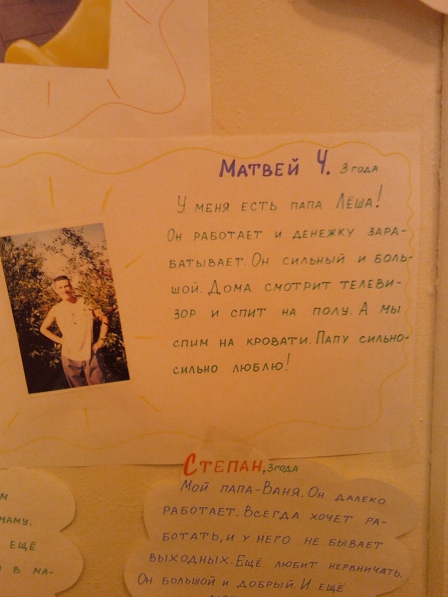 Матвей Ч. 3 года
У меня есть папа Лёша!
Он работает и денежку зара-
батывает. Он сильный и боль-
шой. Дома смотрит телеви-
зор и спит на полу. А мы
спим на кровати. Папу сильно-
сильно люблю!
Степан, 3 года
Мой папа-Ваня. Он далеко
работает. Всегда хочет ра-
ботать, и у него не бывает
выходных. Ещё любит нервничать.
Он большой и добрый. И ещё
маму.
ещё
в ма-